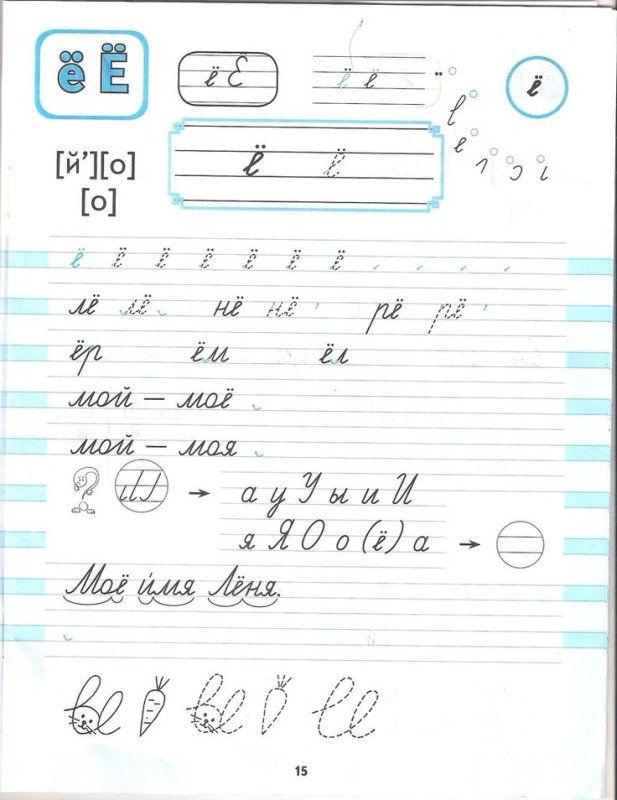 ё Ё
ё Ё
ё ё
ё
[й’][о]
[о]
ё ё
ё ё ё ё ё ё ё
лё лё нё нё рё рё
ёр ём ёл
мой — моё
мой — моя
а у У ы и И
я Я О о (ё) а
Моё и́мя Лёня.
15